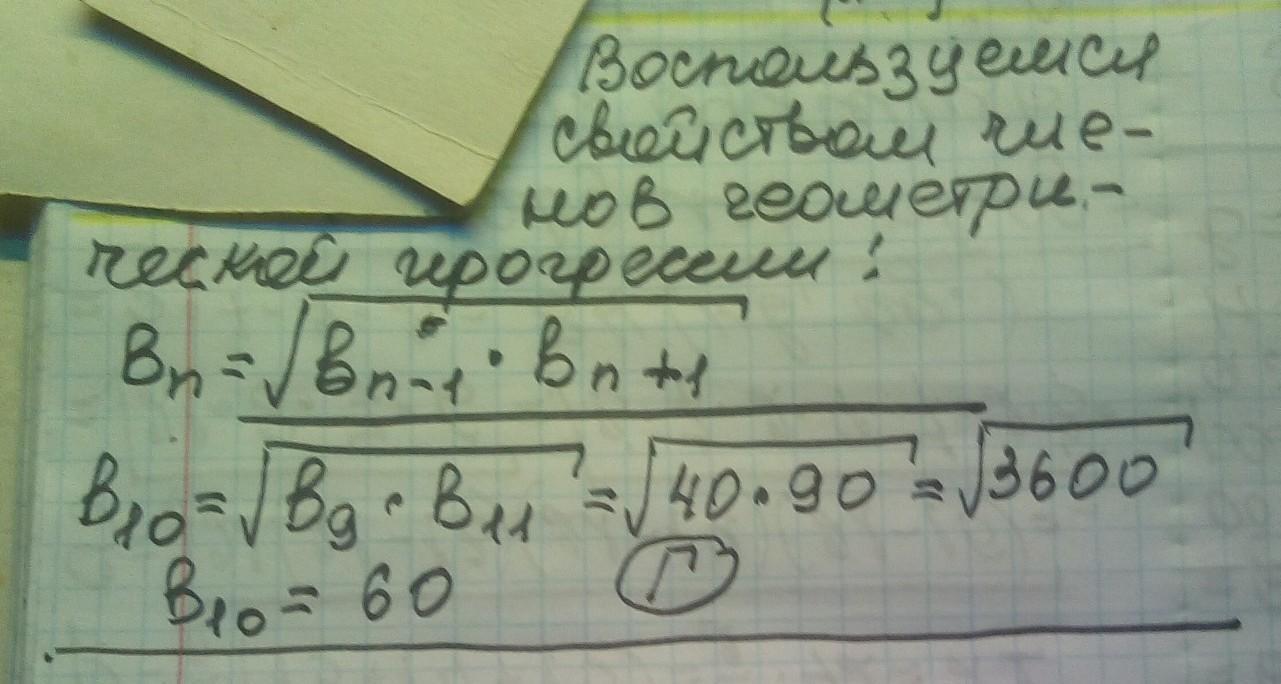 Воспользуемся
свойством чле-
нов геометри-
ческой прогрессии:
Bn = √Bn-1 · Bn+1
B10 = √B9 · B11 = √40 · 90 = √3600
B10 = 60 Г